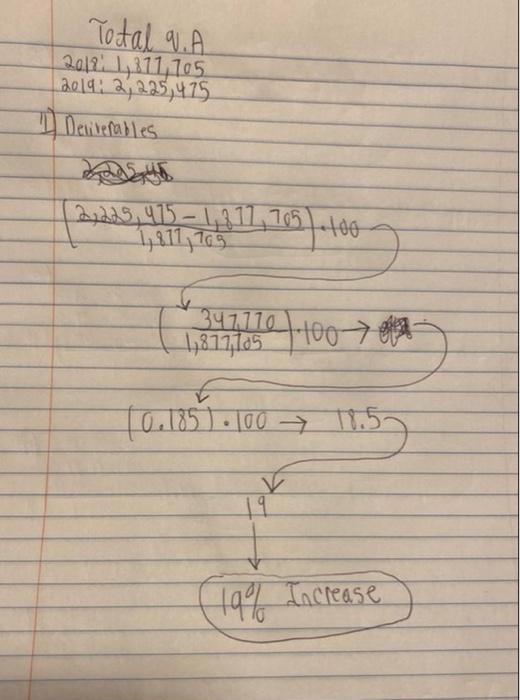 Total q.A
2018: 1,877,705
2019: 2,225,475
1) Deliverables
(2,225,475 - 1,877,705 / 1,877,705) · 100
(347,770 / 1,877,705) · 100 →
(0.185) · 100 → 18.5
19
19% Increase